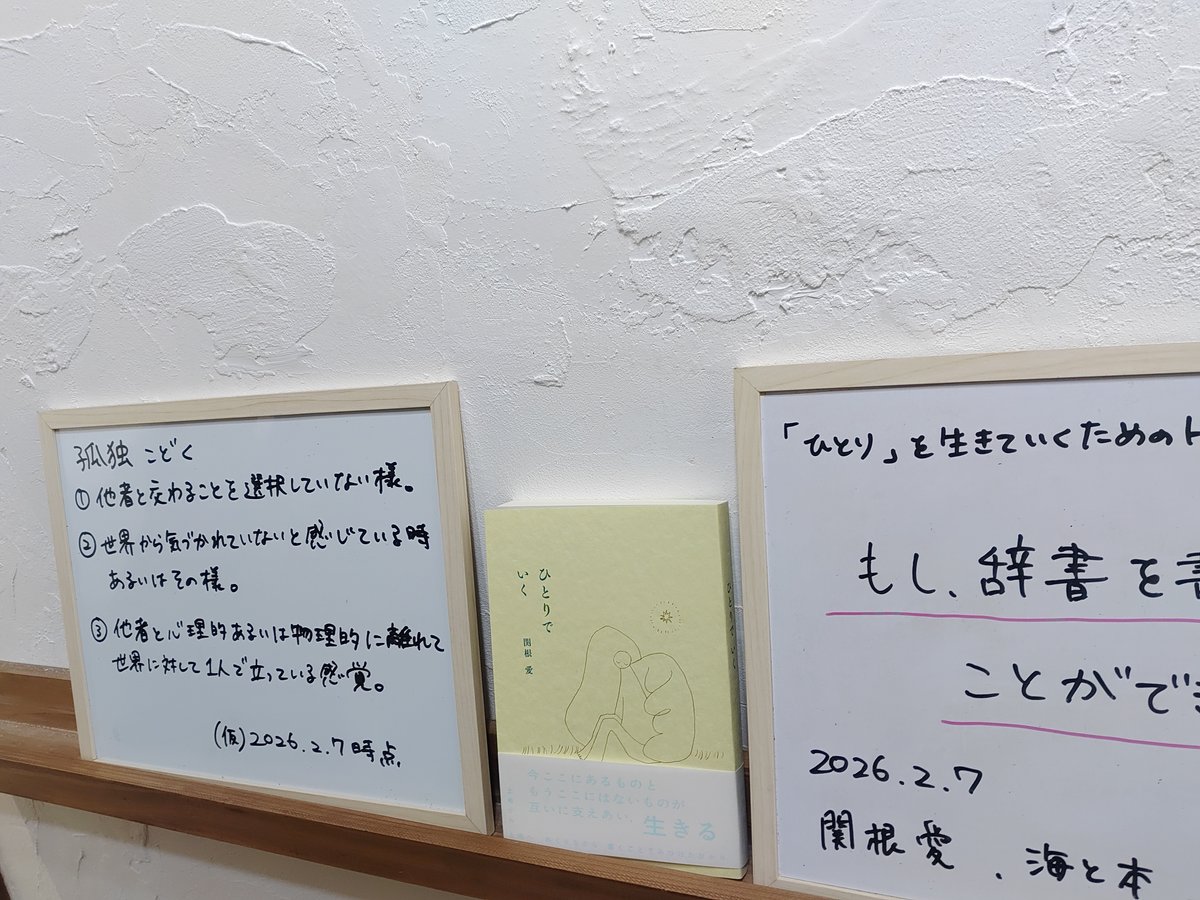 孤独 こどく
①他者と交わることを選択していない様。
②世界から気づかれていないと感じている時
あるいはその様。
③他者と心理的あるいは物理的に離れて
世界に対して1人で立っている感覚。
(仮)2026.2.7時点
ひとりで
いく
関根 愛
ひとりでいく
今ここにあるものと
もうここにはないものが
互いに交えあい、
生きる
「ひとり」を生きていくためのト
もし、辞書を書
ことができ
2026.2.7
関根愛、海と本